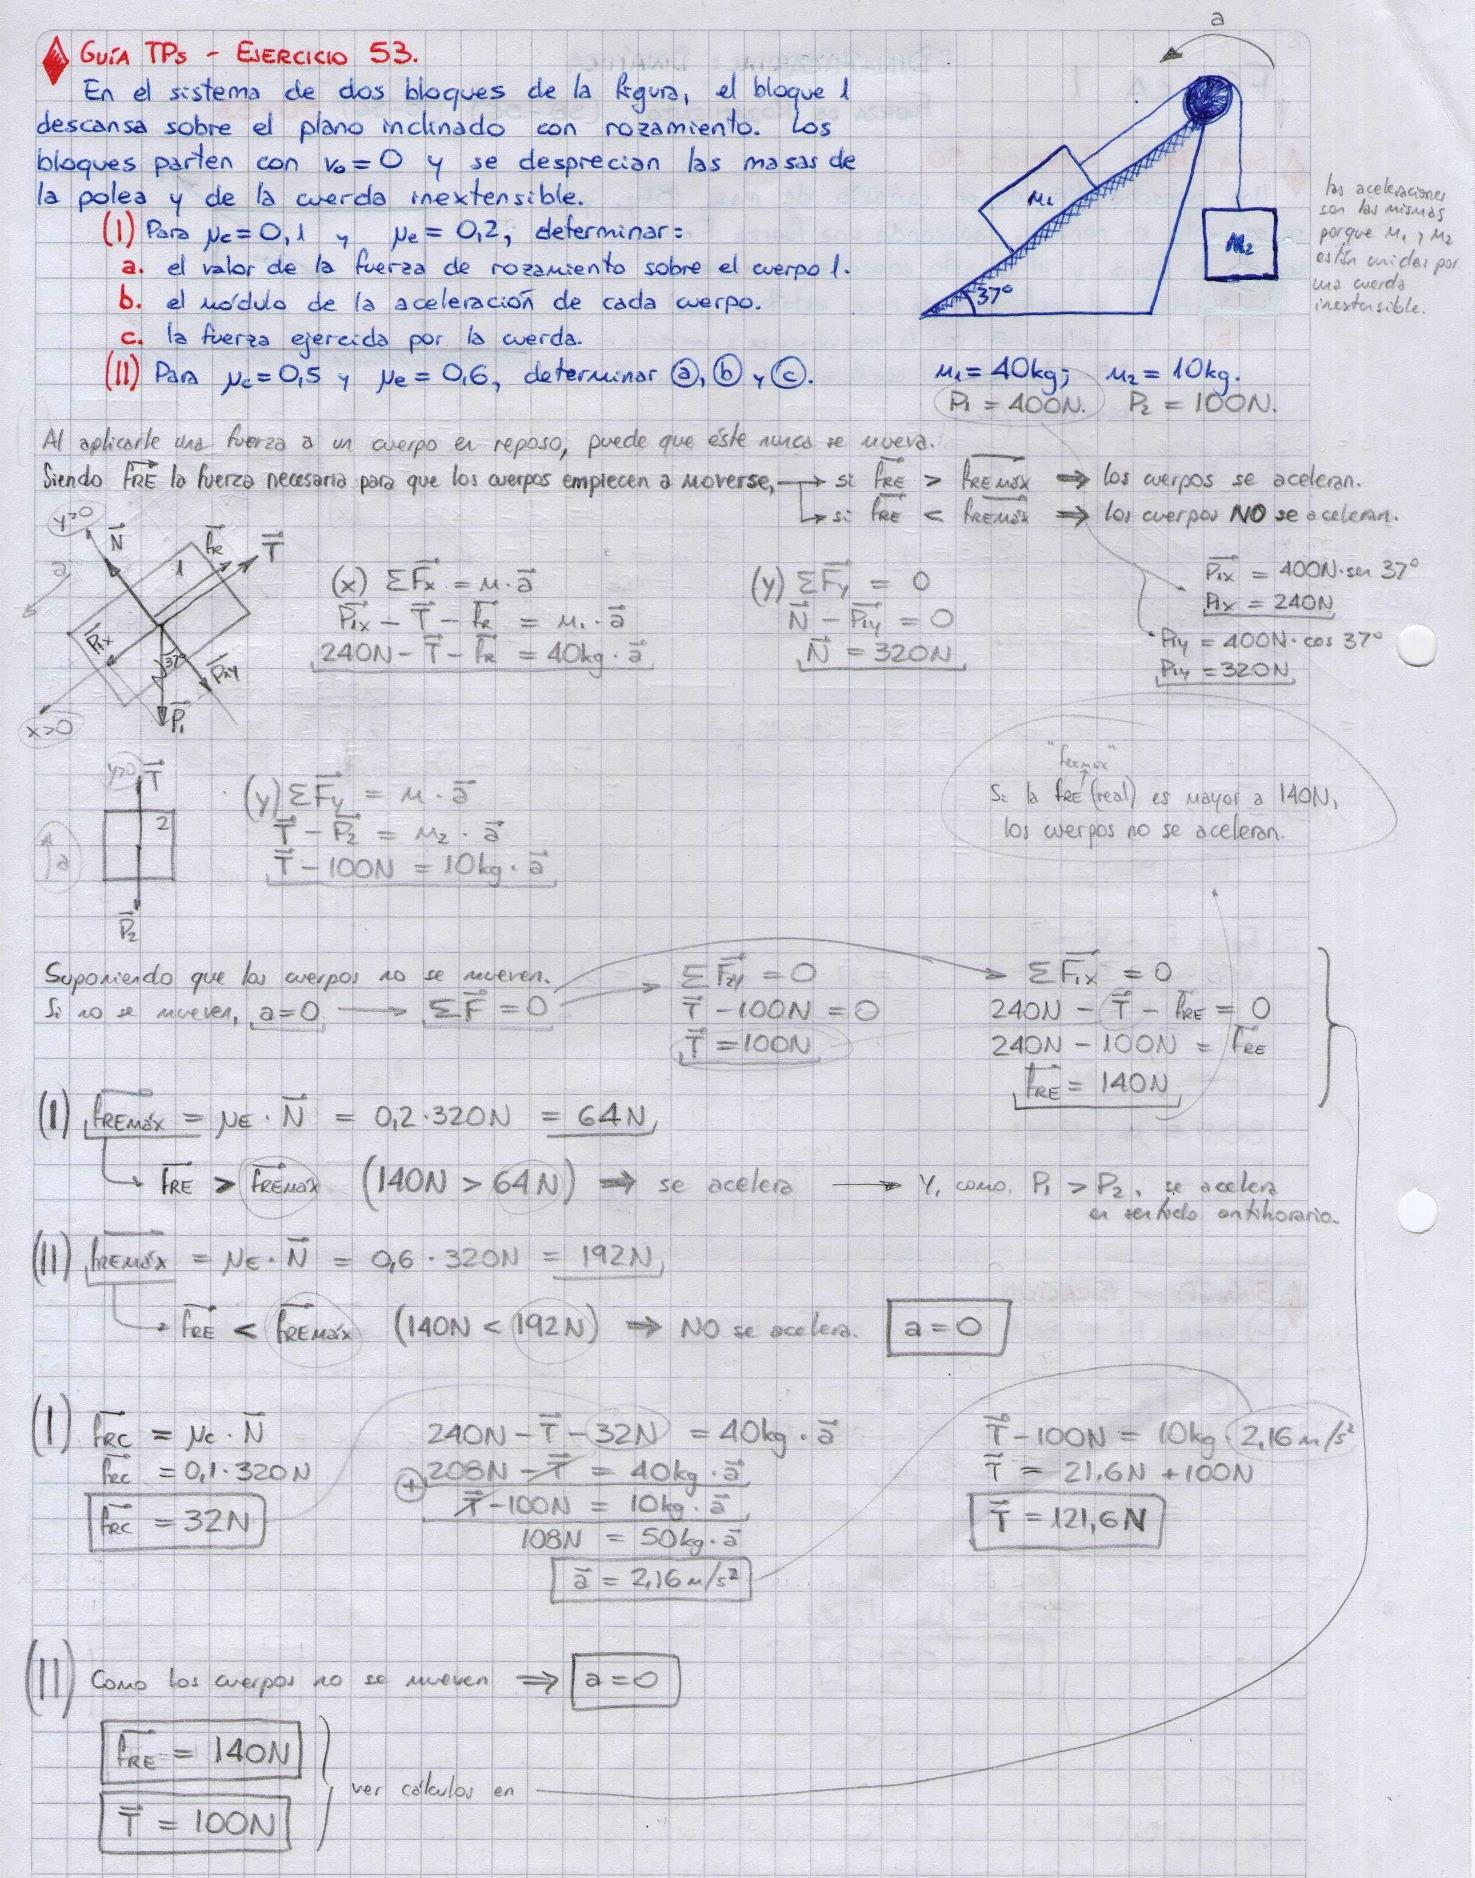 GUÍA TPs - EJERCICIO 53.
En el sistema de dos bloques de la figura, el bloque 1
descansa sobre el plano inclinado con rozamiento. Los
bloques parten con v₀=0 y se desprecian las masas de
la polea y de la cuerda inextensible.
(I) Para μc=0,1 y μe=0,2, determinar:
a. el valor de la fuerza de rozamiento sobre el cuerpo 1.
b. el módulo de la aceleración de cada cuerpo.
c. la fuerza ejercida por la cuerda.
(II) Para μc=0,5 y μe=0,6, determinar ⓐ, ⓑ y ⓒ.
a
M₁
M₂
37°
las aceleraciones
son las mismas
porque M₁ y M₂
están unidas por
una cuerda
inextensible.
M₁=40kg; M₂=10kg.
P₁=400N. P₂=100N.
Al aplicarle una fuerza a un cuerpo en reposo, puede que éste nunca se mueva.
Siendo fRE la fuerza necesaria para que los cuerpos empiecen a moverse, → si fRE > fREMáx ⇒ los cuerpos se aceleran.
↳ si fRE < fREMáx ⇒ los cuerpos NO se aceleran.
y>0
N
fR
T
1
a
P1x
37°
P1y
P₁
x>0
(x) ΣFx = M·a
P1x − T − fR = M₁·a
240N − T − fR = 40kg·a
(y) ΣFy = 0
N − P1y = 0
N = 320N
P1x = 400N·sen 37°
P1x = 240N
P1y = 400N·cos 37°
P1y = 320N
y>0
T
2
a
P₂
(y) ΣFy = M·a
T − P₂ = M₂·a
T − 100N = 10kg·a
"fREMáx"
Si la fRE (real) es mayor a 140N,
los cuerpos no se aceleran.
Suponiendo que los cuerpos no se mueven.
Si no se mueven, a=0 → ΣF=0
ΣF2y = 0
T − 100N = 0
T = 100N
ΣF1x = 0
240N − T − fRE = 0
240N − 100N = fRE
fRE = 140N
(I) fREMáx = μE·N = 0,2·320N = 64N
↳ fRE > fREMáx (140N > 64N) ⇒ se acelera → Y, como P₁ > P₂, se acelera
en sentido antihorario.
(II) fREMáx = μE·N = 0,6·320N = 192N
↳ fRE < fREMáx (140N < 192N) ⇒ NO se acelera. a=0
(I) fRC = μc·N
fRC = 0,1·320N
fRC = 32N
240N − T − 32N = 40kg·a
208N − T = 40kg·a
+ T − 100N = 10kg·a
108N = 50kg·a
a = 2,16m/s²
T − 100N = 10kg 2,16m/s²
T = 21,6N + 100N
T = 121,6N
(II) Como los cuerpos no se mueven ⇒ a=0
fRE = 140N
T = 100N
ver cálculos en